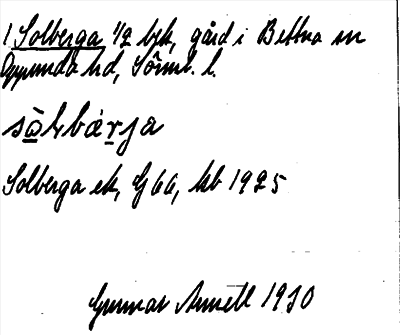 1 Solberga 1/2 byk, gård i Bettna sn
Oppunda hd, Söml. l.
sòlbærja
Solberga ek, G 66, kb 1925
Gunnar Linnell 1930